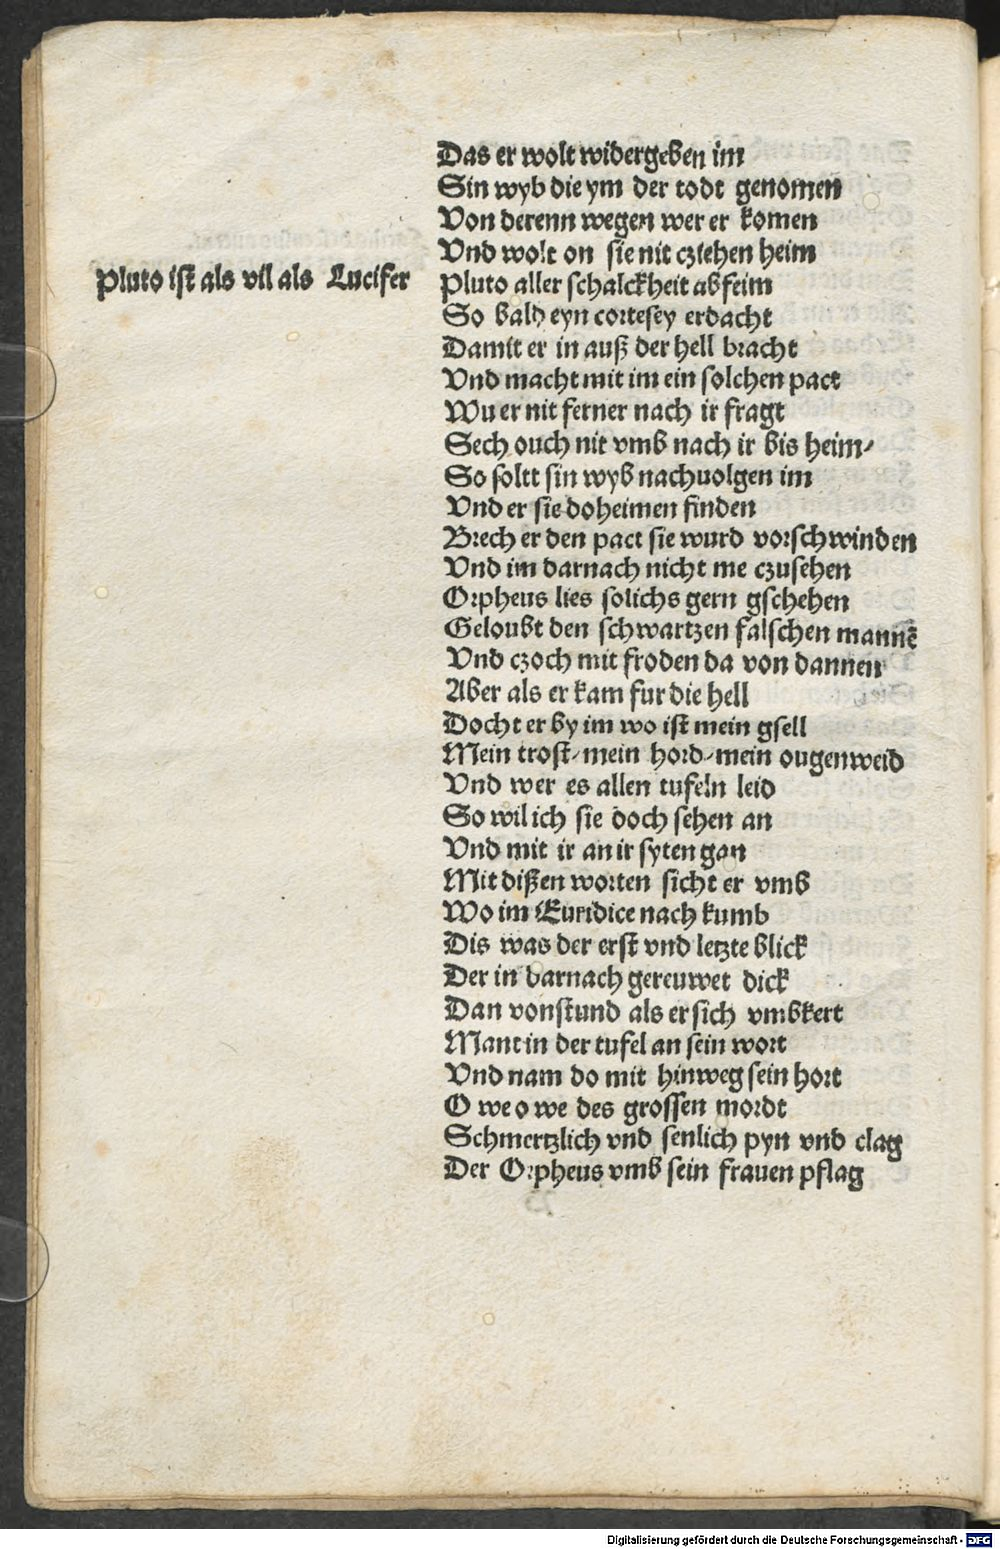 Das er wolt widergeben im
Sin wyb die ym der todt genomen
Von derenn wegen wer er komen
Vnd wolt on sie nit cziehen heim
Pluto ist als vil als Lucifer
Pluto aller schalckheit abfeim
So bald eyn cortesey erdacht
Damit er in auß der hell bracht
Vnd macht mit im ein solchen pact
Wu er nit ferner nach ir fragt
Sech ouch nit vmb nach ir bis heim/
So soltt sin wyb nachuolgen im
Vnd er sie doheimen finden
Brech er den pact sie wurd vorschwinden
Vnd im darnach nicht me czusehen
Orpheus lies solichs gern gschehen
Geloubt den schwartzen falschen mannē
Vnd czoch mit froden da von dannen
Aber als er kam fur die hell
Docht er by im wo ist mein gsell
Mein trost/mein hord/mein ougenweid
Vnd wer es allen tufeln leid
So wil ich sie doch sehen an
Vnd mit ir an ir syten gan
Mit dißen worten sicht er vmb
Wo im Euridice nach kumb
Dis was der erst vnd letzte blick
Der in darnach gereuwet dick
Dan vonstund als er sich vmbkert
Mant in der tufel an sein wort
Vnd nam do mit hinweg sein hort
O we o we des grossen mordt
Schmertzlich vnd senlich pyn vnd clag
Der Orpheus vmb sein frauen pflag
Digitalisierung gefördert durch die Deutsche Forschungsgemeinschaft - DFG